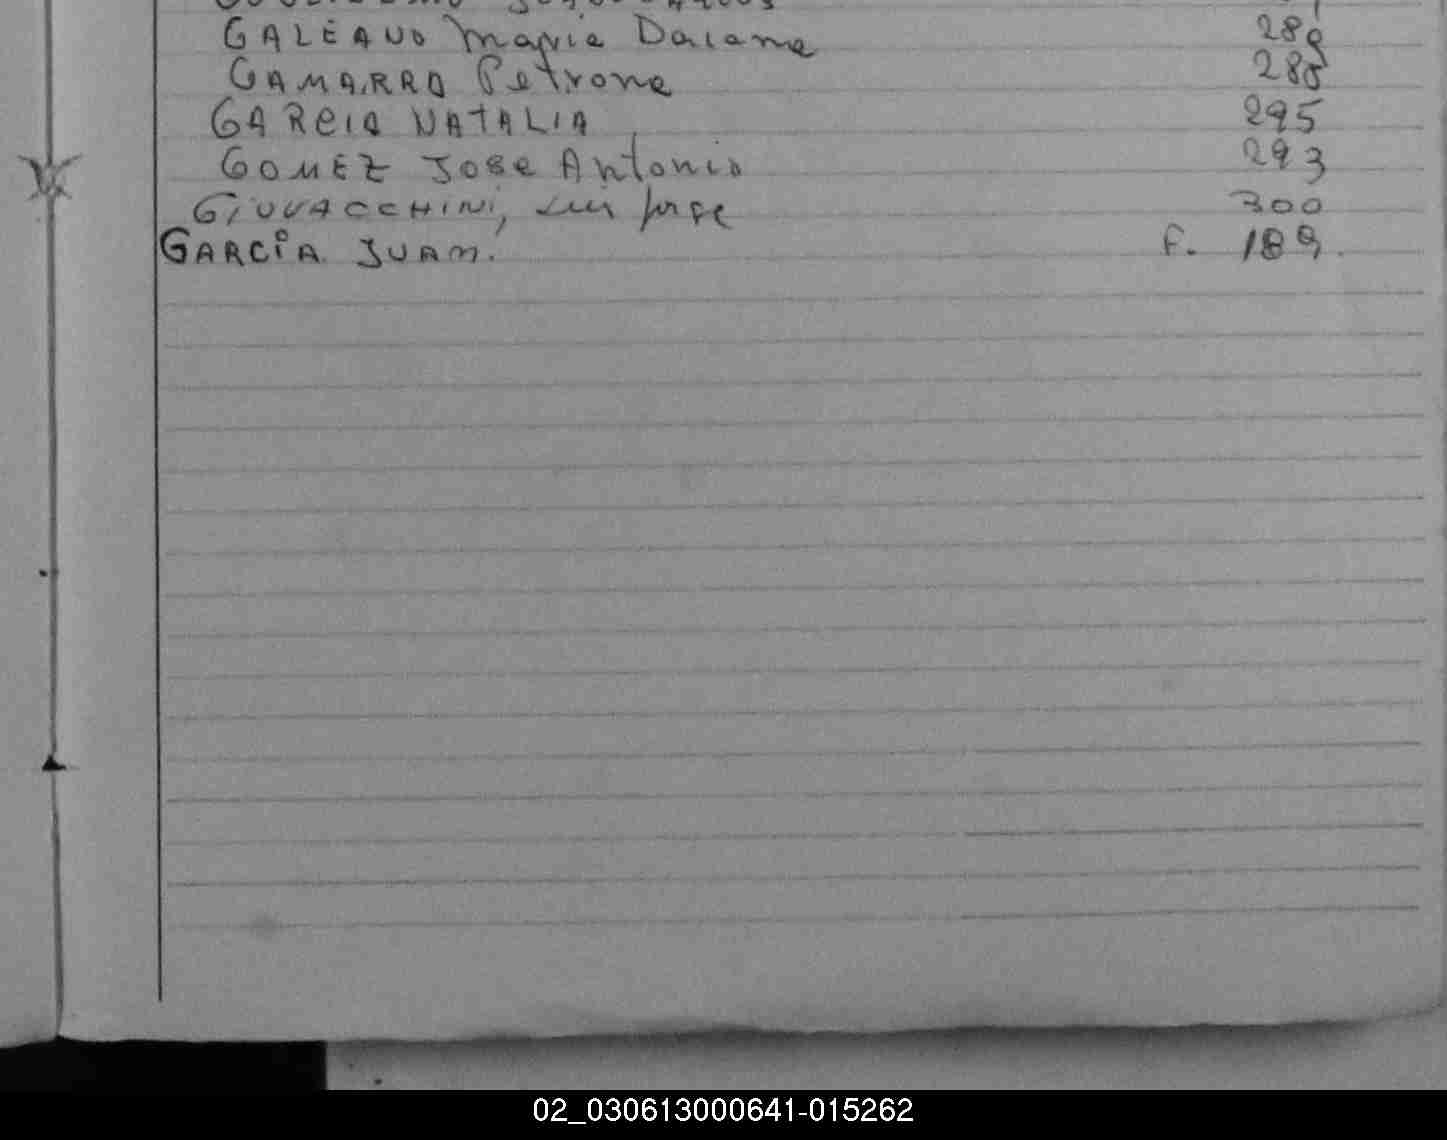 GALEANO Maria Daiana 289
GAMARRA Petrona 288
GARCIA NATALIA 295
GOMEZ Jose Antonio 293
GIOVACCHINI, Luis Jorge 300
GARCÍA JUAN. F. 189.
02_030613000641-015262